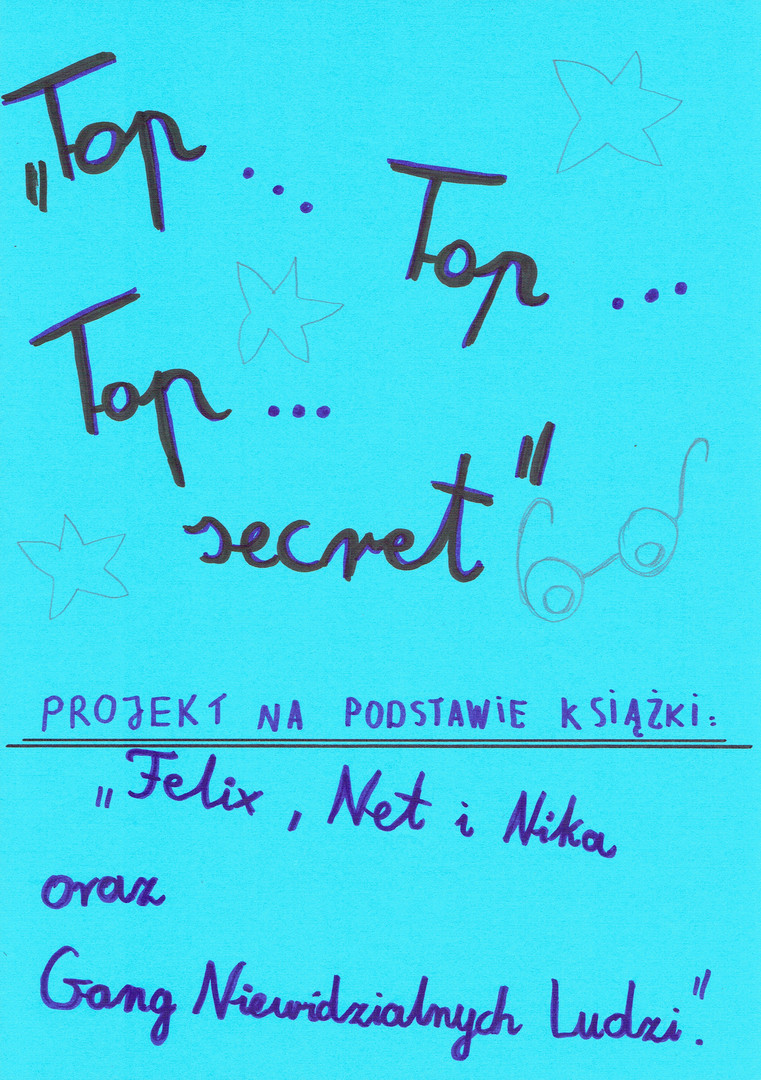 „Top ...
Top ...
Top ...
secret"
PROJEKT NA PODSTAWIE KSIĄŻKI:
„Felix, Net i Nika
oraz
Gang Niewidzialnych Ludzi."